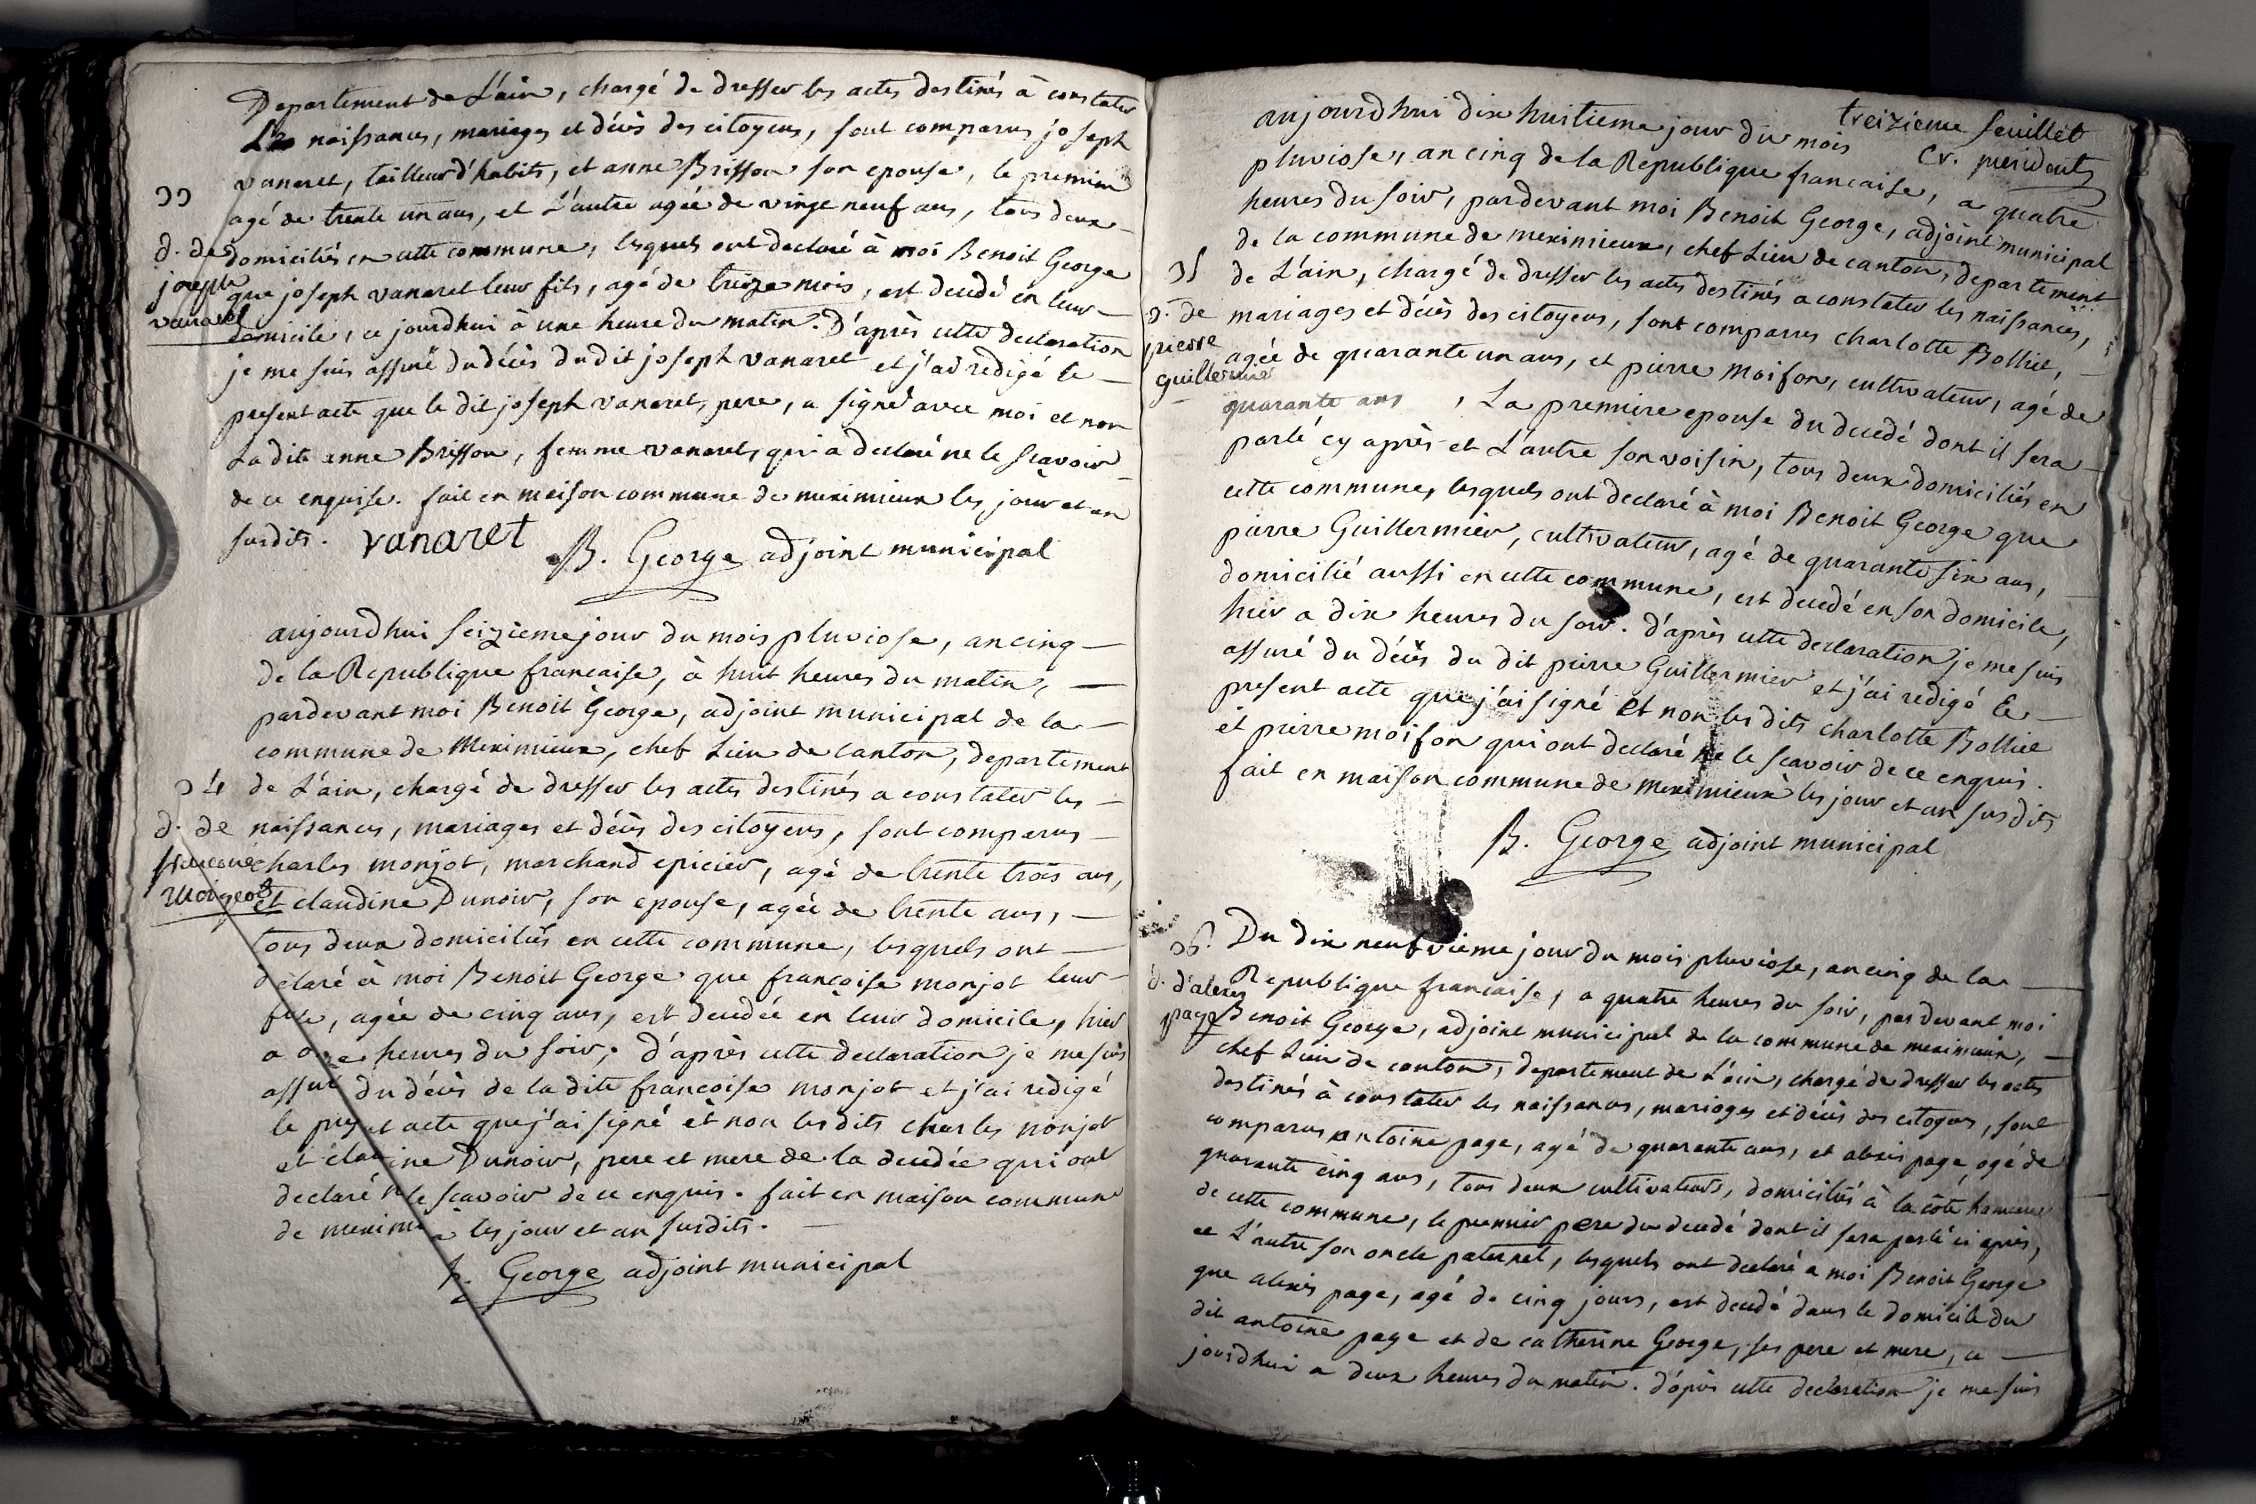 Departement de L'ain, chargé de dresser les actes destinés à constater
Les naissances, mariages et décès des citoyens, sont comparus joseph
vanaret, tailleur d'habits, et anne Brisson son epouse, le premier
33
agé de trente un ans, et L'autre agée de vingt neuf ans, tous deux
d. de
domiciliés en cette commune, lesquels ont declaré à moi Benoit George
joseph
que joseph vanaret leur fils, agé de treize mois, est decedé en leur
vanaret
domicile, ce jourdhui à une heure du matin. D'après cette declaration
je me suis assuré du décès du dit joseph vanaret et j'ai redigé le
present acte que le dit joseph vanaret, pere, a signé avec moi et non
La dite anne Brisson, femme vanaret, qui a declaré ne le scavoir
de ce enquise. fait en maison commune de meximieux les jour et an
susdits. vanaret
B. George adjoint municipal
aujourdhui seizieme jour du mois pluviose, an cinq
de la Republique francaise, à huit heures du matin,
pardevant moi Benoit George, adjoint municipal de la
commune de Meximieux, chef Lieu de canton, departement
34
de L'ain, chargé de dresser les actes destinés a constater les
d. de
naissances, mariages et décès des citoyens, sont comparus
charles monjot, marchand epicier, agé de trente trois ans,
et claudine Dunoir, son epouse, agée de trente ans,
tous deux domiciliés en cette commune, lesquels ont
declaré à moi Benoit George que francoise monjot leur
fille, agée de cinq ans, est decedée en leur domicile, hier
a onze heures du soir. D'après cette declaration je me suis
assuré du décès de la dite francoise monjot et j'ai redigé
le present acte que j'ai signé et non les dits charles monjot
et claudine Dunoir, pere et mere de la decedée qui ont
declaré ne le scavoir de ce enquis. fait en maison commune
de meximieux les jour et an susdits.
B. George adjoint municipal
treizieme feuillet
aujourdhui dix huitieme jour du mois
pluviose, an cinq de la Republique francaise, a quatre
heures du soir, pardevant moi Benoit George, adjoint municipal
de la commune de meximieux, chef Lieu de canton, departement
35
de L'ain, chargé de dresser les actes destinés a constater les naissances,
d. de
mariages et décès des citoyens, sont comparus charlotte Bolliet,
pierre
agée de quarante un ans, et pierre moison, cultivateur, agé de
guillermier
quarante ans, La premiere epouse du decedé dont il sera
parlé cy après et L'autre son voisin, tous deux domiciliés en
cette commune, lesquels ont declaré à moi Benoit George que
pierre Guillermier, cultivateur, agé de quarante six ans,
domicilié aussi en cette commune, est decedé en son domicile,
hier a dix heures du soir. d'après cette declaration je me suis
assuré du décès du dit pierre Guillermier et j'ai redigé le
present acte que j'ai signé et non les dits charlotte Bolliet
et pierre moison qui ont declaré ne le scavoir de ce enquis.
fait en maison commune de meximieux les jour et an susdits
B. George adjoint municipal
36. Du dix neufvieme jour du mois pluviose, an cinq de la
d. d'alexis
Republique francaise, a quatre heures du soir, par devant moi
page
Benoit George, adjoint municipal de la commune de meximieux,
chef Lieu de canton, departement de L'ain, chargé de dresser les actes
destinés à constater les naissances, mariages et décès des citoyens, sont
comparus antoine page, agé de quarante ans, et alexis page, agé de
quarante cinq ans, tous deux cultivateurs, domiciliés à la côte hameau
de cette commune, le premier pere du decedé dont il sera parlé ci après,
et L'autre son oncle paternel, lesquels ont declaré a moi Benoit George
que alexis page, agé de cinq jours, est decedé dans le domicile du
dit antoine page et de catherine George, ses pere et mere, ce
jourdhui a deux heures du matin. d'après cette declaration je me suis